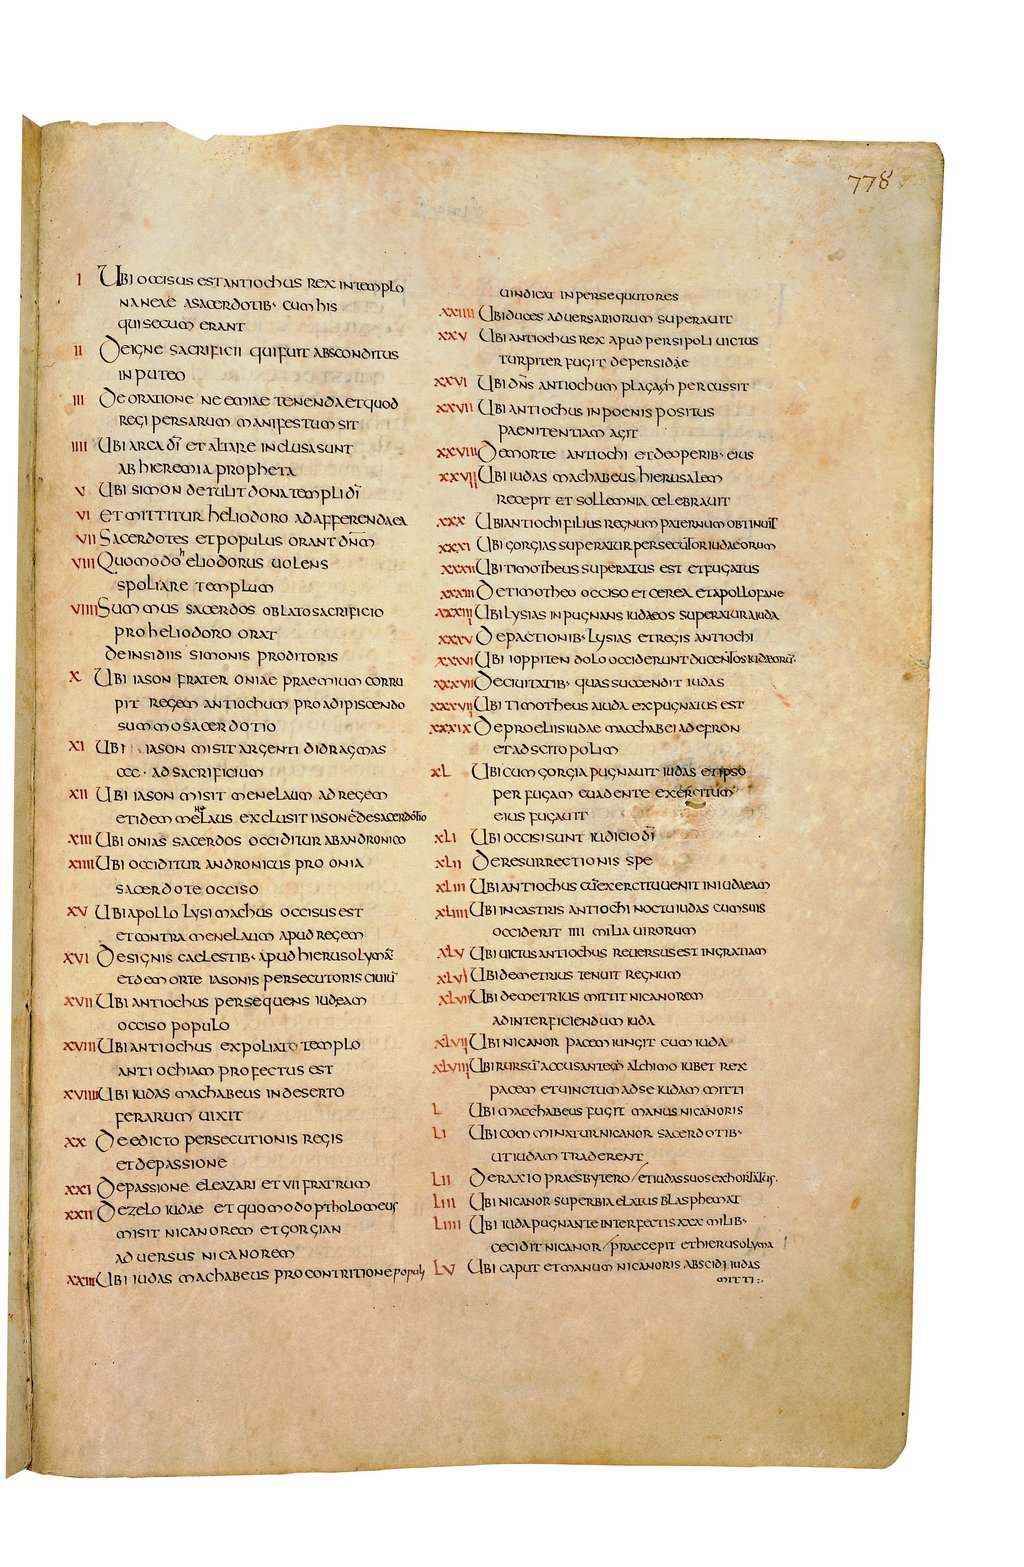 778
I UBI OCCISUS EST ANTIOCHUS REX IN TEMPLO
NANEAE A SACERDOTIB· CUM HIS
QUI SECUM ERANT
II DE IGNE SACRIFICII QUI FUIT ABSCONDITUS
IN PUTEO
III DE ORATIONE NEEMIAE TENENDA ET QUOD
REGI PERSARUM MANIFESTUM SIT
IIII UBI ARCA DI ET ALTARE INCLUSA SUNT
AB HIEREMIA PROPHETA
V UBI SIMON DETULIT DONA TEMPLI DI
VI ET MITTITUR HELIODORO AD AFFERENDA EA
VII SACERDOTES ET POPULUS ORANT DNM
VIII QUOMODO HELIODORUS UOLENS
SPOLIARE TEMPLUM
VIIII SUMMUS SACERDOS OBLATO SACRIFICIO
PRO HELIODORO ORAT
DE INSIDIIS SIMONIS PRODITORIS
X UBI IASON FRATER ONIAE PRAEMIUM CORRU
PIT REGEM ANTIOCHUM PRO ADIPISCENDO
SUMMO SACERDOTIO
XI UBI IASON MISIT ARGENTI DIDRAGMAS
CCC· AD SACRIFICIUM
XII UBI IASON MISIT MENELAUM AD REGEM
ET IDEM MENELAUS EXCLUSIT IASONE DE SACERDOTIO
XIII UBI ONIAS SACERDOS OCCIDITUR AB ANDRONICO
XIIII UBI OCCIDITUR ANDRONICUS PRO ONIA
SACERDOTE OCCISO
XV UBI APOLLO LYSIMACHUS OCCISUS EST
ET CONTRA MENELAUM APUD REGEM
XVI DE SIGNIS CAELESTIB· APUD HIERUSOLYMA
ET DE MORTE IASONIS PERSECUTORIS CIUIU
XVII UBI ANTIOCHUS PERSEQUENS IUDEAM
OCCISO POPULO
XVIII UBI ANTIOCHUS EXPOLIATO TEMPLO
ANTIOCHIAM PROFECTUS EST
XVIIII UBI IUDAS MACHABEUS IN DESERTO
FERARUM UIXIT
XX DE EDICTO PERSECUTIONIS REGIS
ET DE PASSIONE
XXI DE PASSIONE ELEAZARI ET VII FRATRUM
XXII DE ZELO IUDAE ET QUOMODO PTHOLOMEUS
MISIT NICANOREM ET GORGIAN
ADUERSUS NICANOREM
XXIII UBI IUDAS MACHABEUS PRO CONTRITIONE POPULI
UINDICAT IN PERSEQUUTORES
XXIIII UBI DUCES ADUERSARIORUM SUPERAUIT
XXV UBI ANTIOCHUS REX APUD PERSIPOLI UICTUS
TURPITER FUGIT DE PERSIDAE
XXVI UBI DNS ANTIOCHUM PLAGAM PERCUSSIT
XXVII UBI ANTIOCHUS IN POENIS POSITUS
PAENITENTIAM AGIT
XXVIII DE MORTE ANTIOCHI ET DE OPERIB· EIUS
XXVIIII UBI IUDAS MACHABEUS HIERUSALEM
RECEPIT ET SOLLEMNIA CELEBRAUIT
XXX UBI ANTIOCHI FILIUS REGNUM PATERNUM OBTINUIT
XXXI UBI GORGIAS SUPERATUR PERSECUTOR IUDAEORUM
XXXII UBI TIMOTHEUS SUPERATUS EST ET FUGATUS
XXXIII DE TIMOTHEO OCCISO ET CEREA ET APOLLOFANE
XXXIIII UBI LYSIAS INPUGNANS IUDAEOS SUPERATUR A IUDA
XXXV DE PACTIONIB· LYSIAS ET REGIS ANTIOCHI
XXXVI UBI IOPPITEN DOLO OCCIDERUNT DUCENTOS IUDAEORU·
XXXVII DE CIUITATIB· QUAS SUCCENDIT IUDAS
XXXVIII UBI TIMOTHEUS A IUDA EXPUGNATUS EST
XXXIX DE PROELIIS IUDAE MACCHABEI AD EFRON
ET AD SCITOPOLIM
XL UBI CUM GORGIA PUGNAUIT IUDAS ET IPSO
PER FUGAM EUADENTE EXERCITUM
EIUS FUGAUIT
XLI UBI OCCISI SUNT IUDICIO DI
XLII DE RESURRECTIONIS SPE
XLIII UBI ANTIOCHUS CU EXERCITU UENIT IN IUDAEAM
XLIIII UBI IN CASTRIS ANTIOCHI NOCTU IUDAS CUM SUIS
OCCIDERIT IIII MILIA UIRORUM
XLV UBI UICTUS ANTIOCHUS REUERSUS EST IN GRATIAM
XLVI UBI DEMETRIUS TENUIT REGNUM
XLVII UBI DEMETRIUS MITTIT NICANOREM
AD INTERFICIENDUM IUDA
XLVIII UBI NICANOR PACEM IUNGIT CUM IUDA
XLVIIII UBI RURSU ACCUSANTE ALCHIMO IUBET REX
PACEM ET UINCTUM AD SE IUDAM MITTI
L UBI MACCHABEUS FUGIT MANUS NICANORIS
LI UBI COMMINATUR NICANOR SACERDOTIB·
UT IUDAM TRADERENT
LII DE RAXIO PRAESBYTERO / ET IUDAS SUOS EXHORTATUR·
LIII UBI NICANOR SUPERBIA ELATUS BLASPHEMAT
LIIII UBI IUDA PUGNANTE INTERFECTIS XXX MILIB·
CECIDIT NICANOR / PRAECEPIT ET HIERUSOLYMA
LV UBI CAPUT ET MANUM NICANORIS ABSCIDI IUDAS
MITTI :.